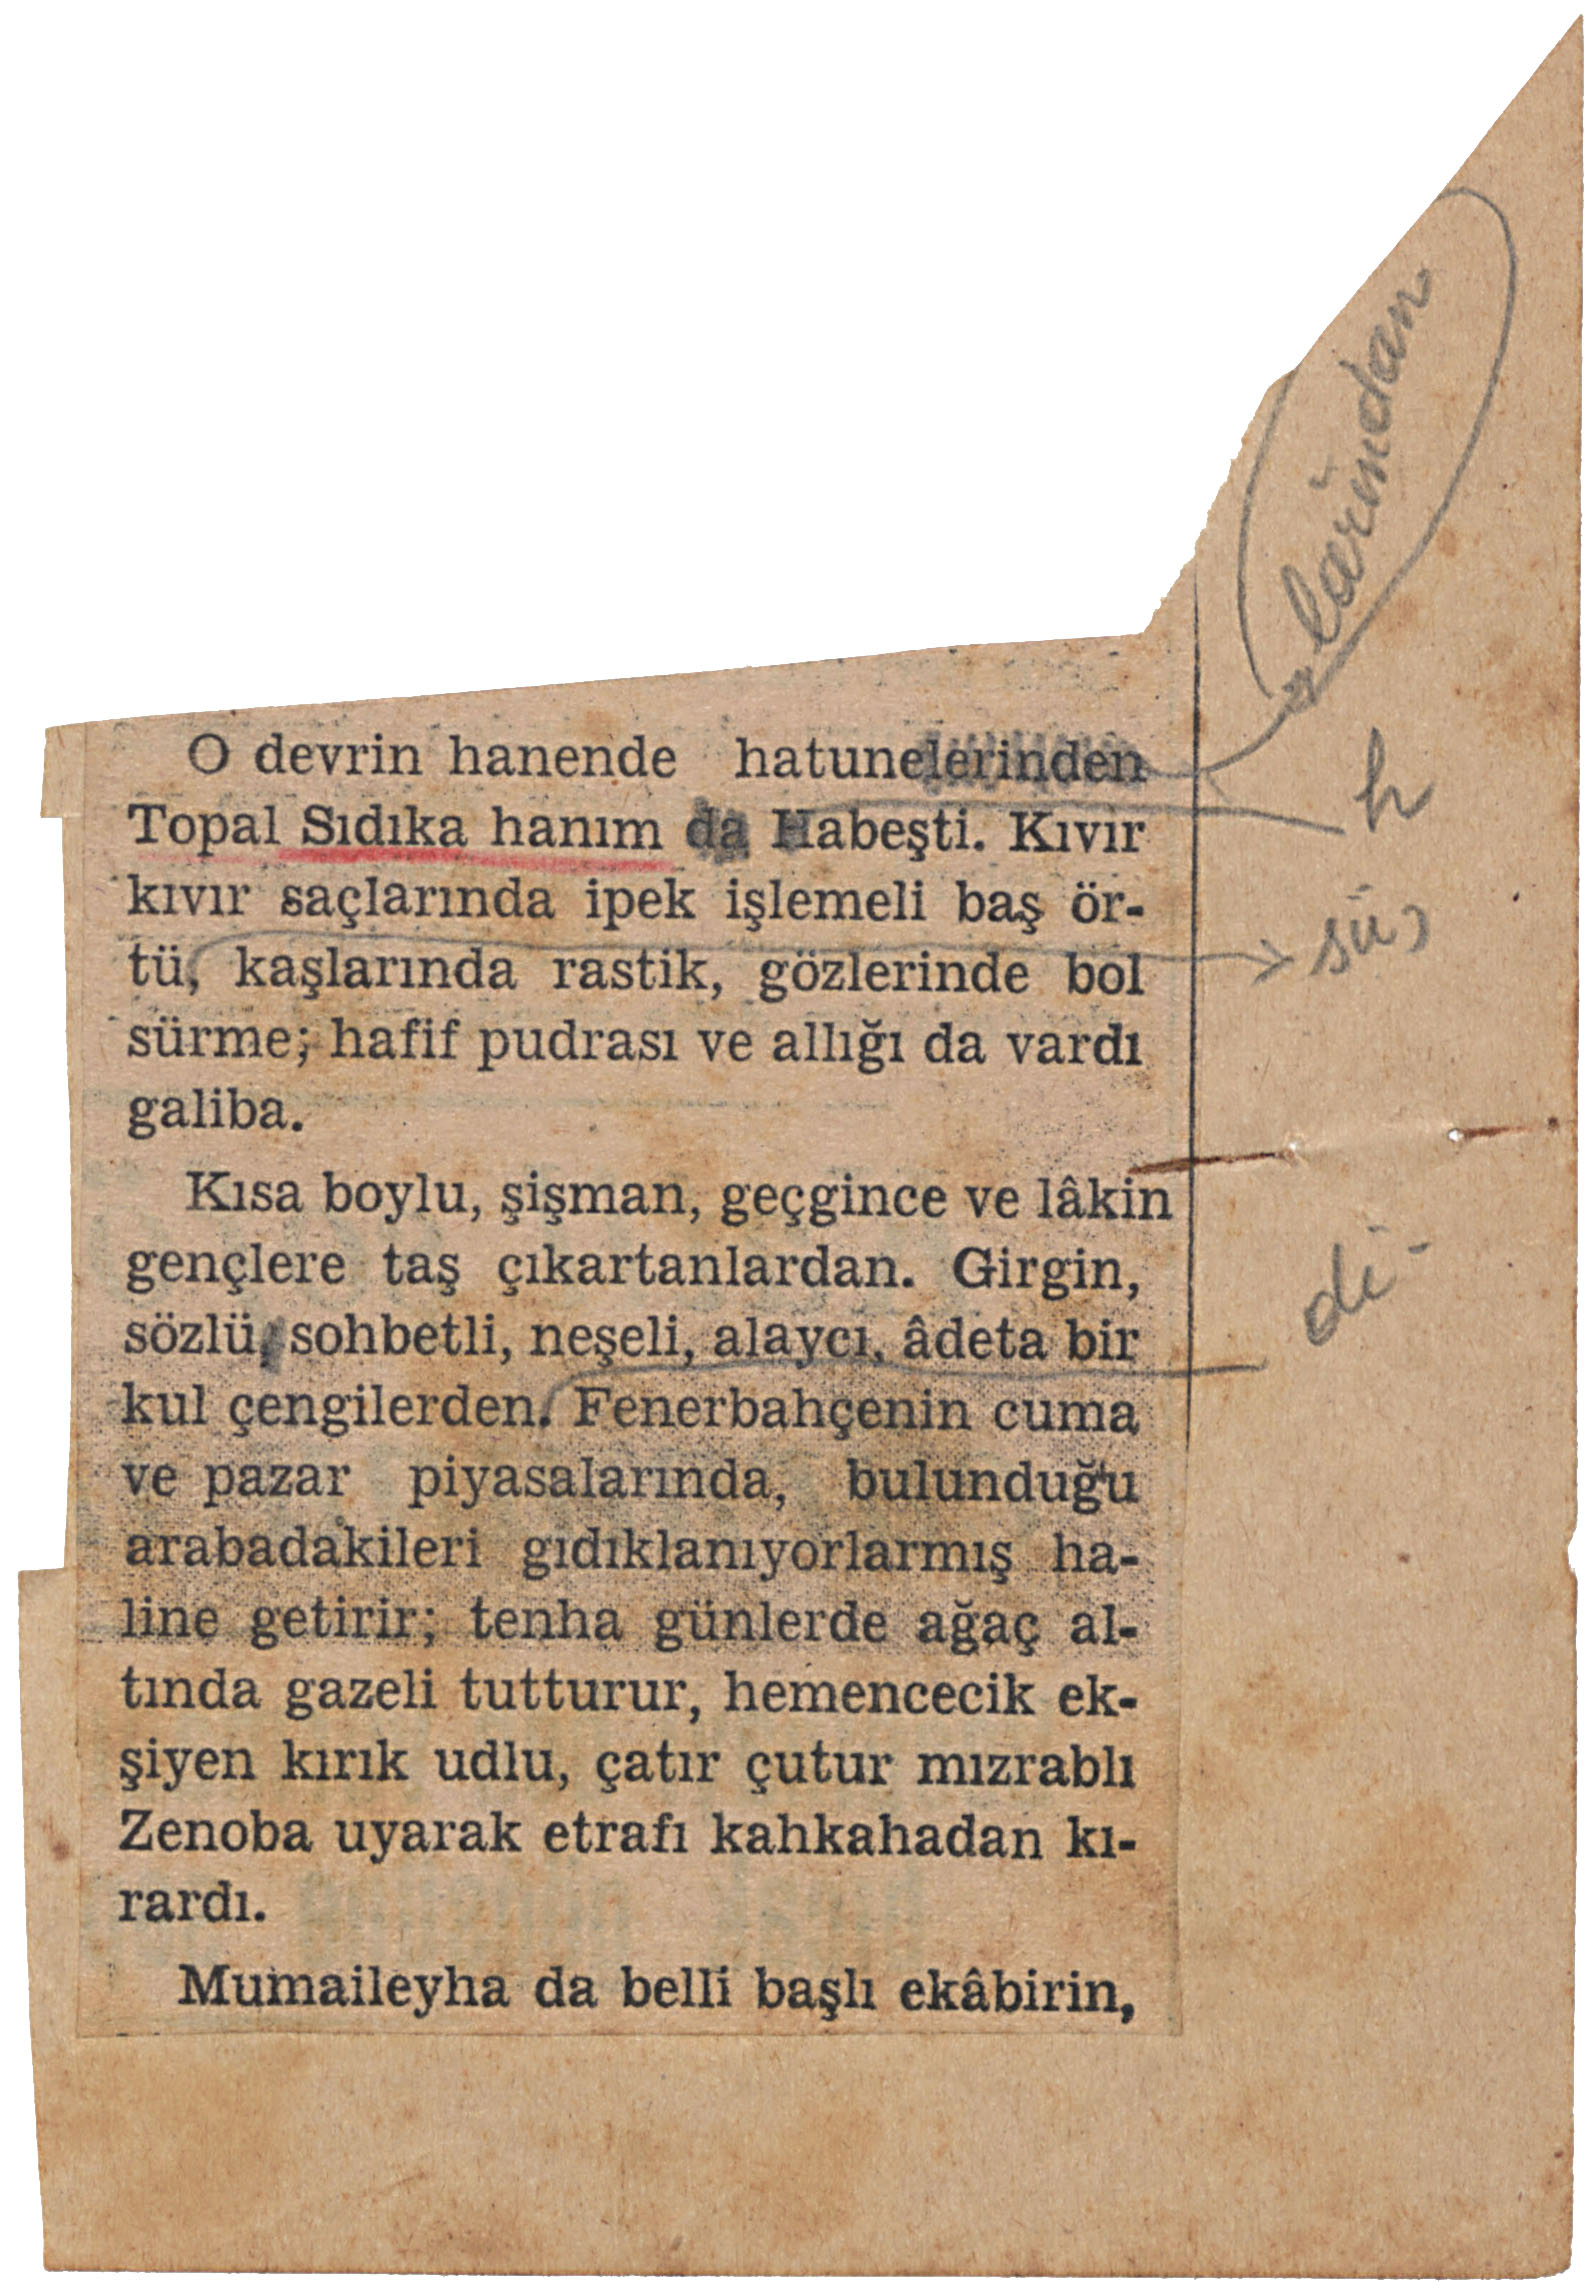 larından
O devrin hanende hatunelerinden
h
Topal Sıdıka hanım da Habeşti. Kıvır
kıvır saçlarında ipek işlemeli baş ör-
sü,
tü, kaşlarında rastik, gözlerinde bol
sürme; hafif pudrası ve allığı da vardı
galiba.
Kısa boylu, şişman, geçgince ve lâkin
gençlere taş çıkartanlardan. Girgin,
di.
sözlü, sohbetli, neşeli, alaycı, âdeta bir
kul çengilerden. Fenerbahçenin cuma
ve pazar piyasalarında, bulunduğu
arabadakileri gıdıklanıyorlarmış ha-
line getirir; tenha günlerde ağaç al-
tında gazeli tutturur, hemencecik ek-
şiyen kırık udlu, çatır çutur mızrablı
Zenoba uyarak etrafı kahkahadan kı-
rardı.
Mumaileyha da belli başlı ekâbirin,